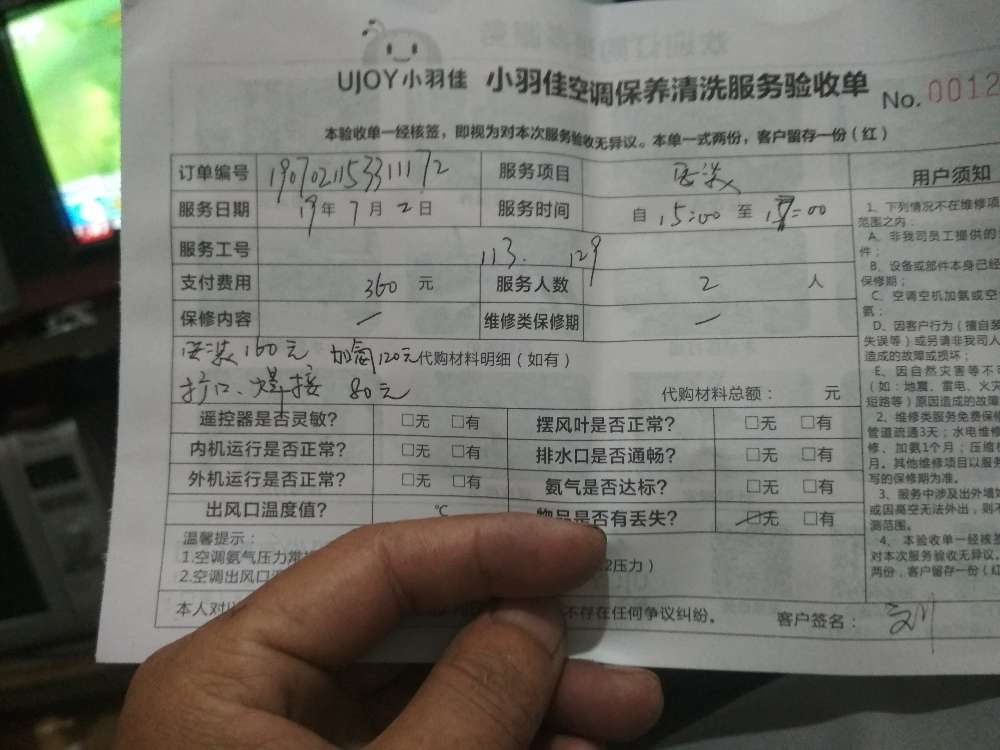 UJOY小羽佳 小羽佳空调保养清洗服务验收单 No. 0012
本验收单一经核签，即视为对本次服务验收无异议。本单一式两份，客户留存一份（红）
订单编号 190702115331172 服务项目
服务日期 19年7月2日 服务时间 自 15:00 至 17:00
服务工号 113. 129
支付费用 360 元 服务人数 2 人
保修内容 / 维修类保修期 /
安装160元 加氨120元 代购材料明细（如有）
扩口、焊接 80元 代购材料总额： 元
遥控器是否灵敏？ □无 □有 摆风叶是否正常？ □无 □有
内机运行是否正常？ □无 □有 排水口是否通畅？ □无 □有
外机运行是否正常？ □无 □有 氨气是否达标？ □无 □有
出风口温度值？ ℃ 物品是否有丢失？ □无 □有
温馨提示：
1.空调氨气压力常 2压力）
2.空调出风口
本人对 不存在任何争议纠纷。 客户签名：
用户须知
1、下列情况不在维修项
范围之内：
A、非我司员工提供的
件；
B、设备或部件本身已经
保修期；
C、空调空机加氨或空
氨；
D、因客户行为（擅自装
失误等）或另请非我司人
造成的故障或损坏；
E、因自然灾害等不可
（如：地震、雷电、火灾
短路等）原因造成的故障
2、维修类服务免费保
管道疏通3天；水电维修
修、加氨1个月；压缩
月。其他维修项目以服务
写的保修期为准。
3、服务中涉及出外墙
或因高空无法外出，则不
测范围。
4、本验收单一经核签
对本次服务验收无异议。
两份，客户留存一份（红